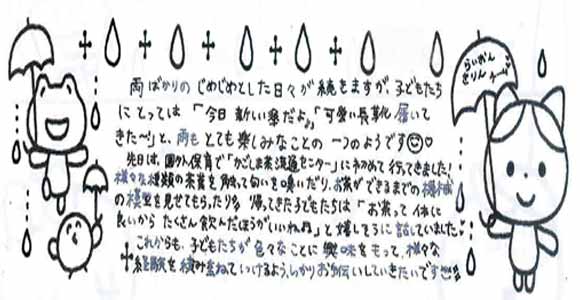 らいおん
きりんチーム
雨ばかりのじめじめとした日々が続きますが、子どもたち
にとっては「今日新しい傘だよ♪」「可愛い長靴履いて
きた〜」と、雨もとても楽しみなことの一つのようです☺♡
先日は、園外保育で「かごしま茶流通センター」に初めて行ってきました!
様々な種類の茶葉を触って匂いを嗅いだり、お茶ができるまでの機械
の模型を見せてもらったりし、帰ってきた子どもたちは「お茶って体に
良いからたくさん飲んだほうがいいね♫」と嬉しそうに話していました♡
これからも、子どもたちが色々なことに興味をもって、様々な
経験を積み重ねていけるよう、しっかりお手伝いしていきたいです